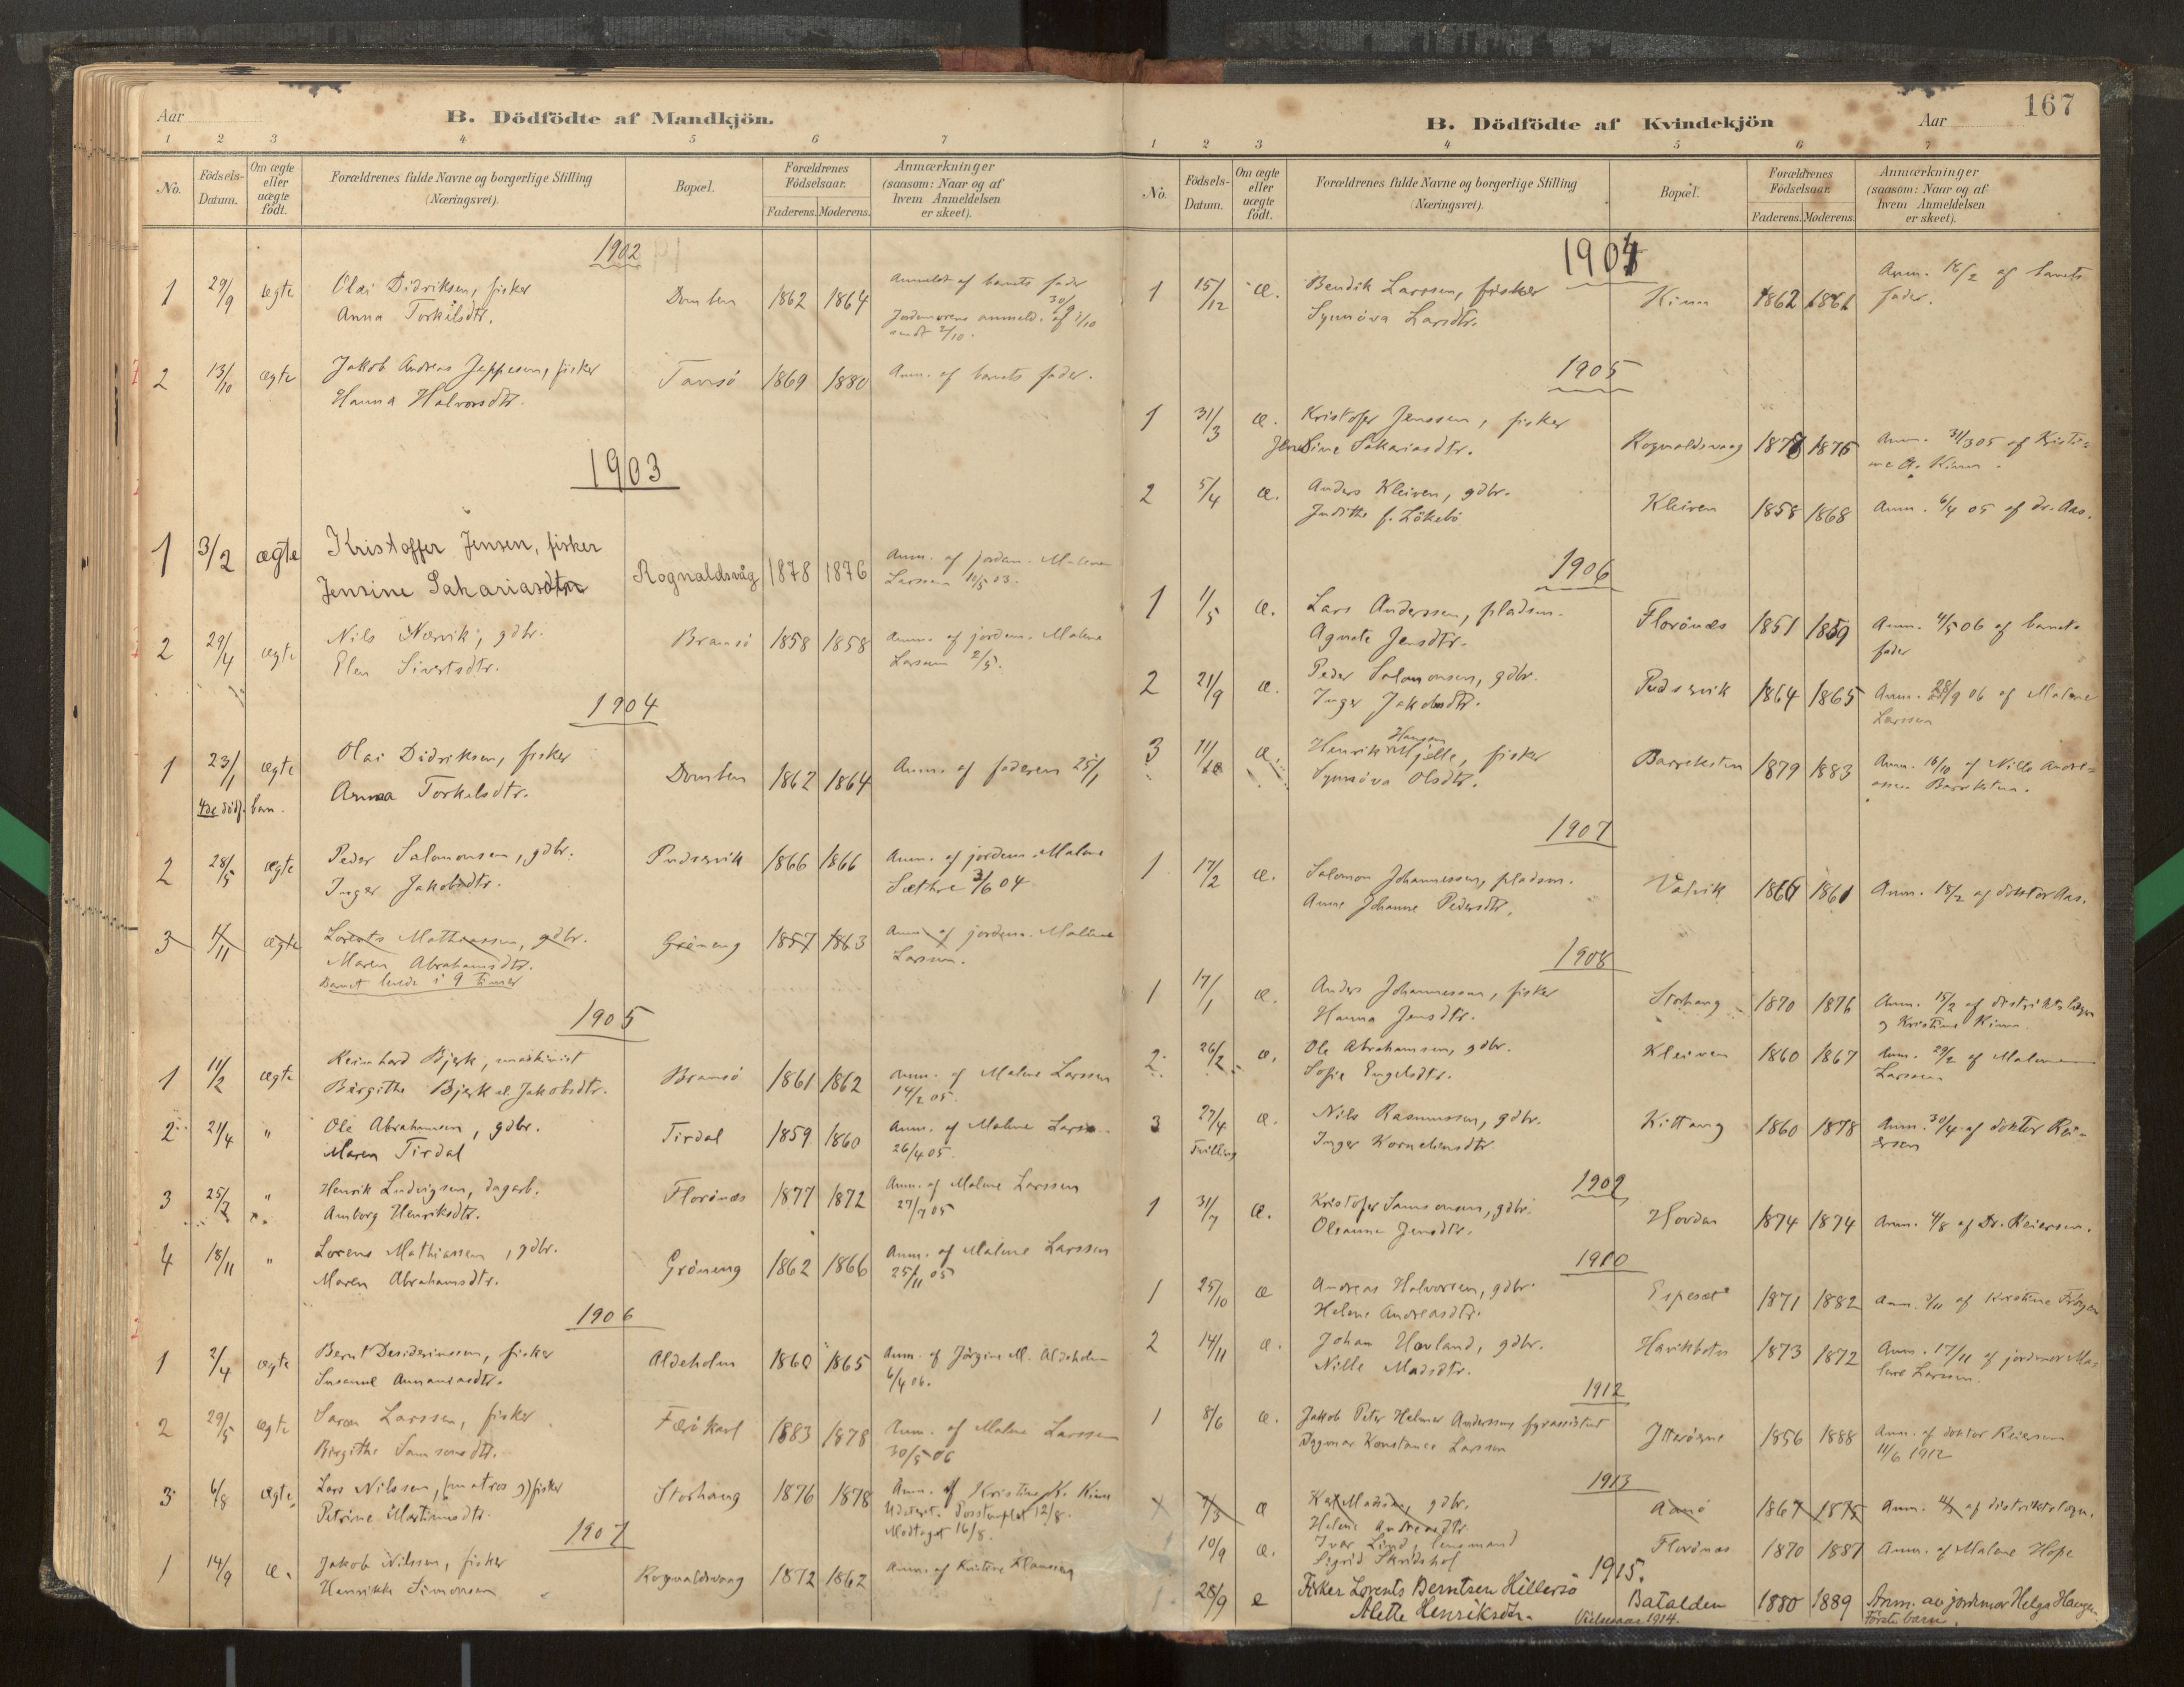 Aar
B. Dödfödte af Mandkjön.
1 2 3 4 5 6 7
No.
Födsels-Datum.
Om ægte eller uægte født.
Forældrenes fulde Navne og borgerlige Stilling (Næringsvei).
Bopæl.
Forældrenes Födselsaar.
Faderens. Moderens.
Anmærkninger (saasom: Naar og af hvem Anmeldelsen er skeet).
1902
1 29/9 ægte Olai Didriksen, fisker Domben 1862 1864 Anmeldt af barnets fader 30/9
Anna Torkilsdtr. Jordemorens anmeld. af 1/10
sendt 2/10.
2 13/10 ægte Jakob Andreas Jeppesen, fisker Tansö 1869 1880 Anm. af barnets fader.
Hanna Halvorsdtr.
1903
1 3/2 ægte Kristoffer Jensen, fisker Rognaldsvåg 1878 1876 Anm. af jordem. Malene
Jensine Sakariasdtr Larssen 10/5 03.
2 29/4 ægte Nils Nærvik, gdbr. Bransö 1858 1858 Anm. af jordem. Malene
Elen Sivertsdtr. Larssen 2/5.
1904
1 23/1 ægte Olai Didriksen, fisker Domben 1862 1864 Anm. af faderen 25/1
4de dödf. barn. Anna Torkilsdtr.
2 28/5 ægte Peder Salomonsen, gdbr. Pudsevik 1866 1866 Anm. af jordem. Malene
Inger Jakobsdtr. Sæthre 3/6 04
3 /11 ægte Lorents Mathiassen, gdbr. Gröneng 1857 1863 Anm. af jordem. Malene
Maren Abrahamsdtr. Larssen.
Barnet levede i 9 timer
1905
1 11/2 ægte Reinhard Bjerk, maskinist Bransö 1861 1862 Anm. af Malene Larssen
Birgithe Bjerk f. Jakobsdtr. 14/2 05.
2 21/4 " Ole Abrahamsen, gdbr. Tirdal 1859 1860 Anm. af Malene Larssen
Maren Tirdal 26/4 05.
3 25/7 " Henrik Ludvigsen, dagarb. Florönæs 1877 1872 Anm. af Malene Larssen
Amborg Henriksdtr. 27/7 05
4 18/11 " Lorens Mathiassen, gdbr. Gröneng 1862 1866 Anm. af Malene Larssen
Maren Abrahamsdtr. 25/11 05
1906
1 2/4 ægte Bernt Desideriussen, fisker Aldeholm 1860 1865 Anm. af Jörgine M. Aldeholm
Susanne Annaniasdtr. 6/4 06.
2 29/5 ægte Saron Larssen, fisker Færökarl 1883 1878 Anm. af Malene Larssen
Birgithe Samsonsdtr. 30/5 06
3 6/8 ægte Lars Nilssen, (matros og) fisker Storhaug 1876 1878 Anm. af Kristine K. Kinn
Petrine Martinusdtr. Udateret. Poststemplet 12/8.
Modtaget 16/8.
1907
1 14/9 æ. Jakob Nilssen, fisker Rognaldsvaag 1872 1862 Anm. af Kristine Klausen
Henrikke Simonsen
167
B. Dödfödte af Kvindekjön
Aar
1 2 3 4 5 6 7
No.
Födsels-Datum.
Om ægte eller uægte födt.
Forældrenes fulde Navne og borgerlige Stilling (Næringsvei).
Bopæl.
Forældrenes Födselsaar.
Faderens. Moderens.
Anmærkninger (saasom: Naar og af hvem Anmeldelsen er skeet).
1904
1 15/12 æ. Bendik Larssen, fisker Kinn 1862 1861 Anm. 18/2 af barnets
Synnöva Larsdtr. fader.
1905
1 31/3 æ. Kristofer Jenssen, fisker
Jensine Sakariasdtr. Rognaldsvaag 1878 1876 Anm. 31/3 05 af Kristi-
ne K. Kinn.
2 5/4 æ. Anders Kleiven, gdbr. Kleiven 1858 1868 Anm. 6/4 05 af dr. Aas.
Judithe f. Lökebö
1906
1 1/5 æ. Lars Anderssen, pladsm. Florönæs 1851 1859 Anm. 4/5 06 af barnets
Agnete Jensdtr. fader
2 21/9 æ. Peder Salomonsen, gdbr. Pudsevik 1864 1865 Anm. 28/9 06 af Malene
Inger Jakobsdtr. Larssen
3 11/10 æ. Henrik Hansen Mjelle, fisker Barreksten 1879 1883 Anm. 16/10 af Nille Andre-
Synnöva Olsdtr. assen Barreksten.
1907
1 17/2 æ. Salomon Johannessen, pladsm. Vadvik 1861 Anm. 18/2 af doktor Aas.
Anne Johanne Pedersdtr.
1908
1 17/1 æ. Anders Johannessen, fisker Storhaug 1870 1876 Anm. 15/2 af distriktslægen
Hanna Jensdtr. og Kristine Kinn
2 26/2 æ. Ole Abrahamsen, gdbr. Kleiven 1860 1867 Anm. 29/2 af Malene
Sofie Engelsdtr. Larssen
3 27/4 æ. Nils Rasmussen, gdbr. Kittang 1860 1878 Anm. 30/4 af doktor Rei-
Tvilling Inger Korneliusdtr. ersen
1909
1 31/7 æ. Kristofer Samsonsen, gdbr. Hovden 1874 1874 Anm. 4/8 af Dr. Reiersen.
Oleanna Jensdtr.
1910
1 25/10 æ Andreas Halvorsen, gdbr. Espeset 1871 1882 Anm. 3/11 af Kristine
Helene Andreasdtr.
2 14/11 æ. Johan Hovland, gdbr. Havikbotn 1873 1872 Anm. 17/11 af jordmor Ma-
Nille Madsdtr. lene Larssen.
1912
1 8/6 æ. Jakob Peter Helmer Anderssen, fyrassistent Ytteröyne 1856 1888 Anm. af doktor Reiersen
Dagmar Konstance Larssen 11/6 1912
1913
1 7/3 æ Madsen, gdbr. 1867 1875 Anm. af distriktslægen.
Helene Andreasdtr.
1 10/9 æ. Ivar Lind, lensmand Florönæs 1870 1887 Anm. af Malene Hope
Sigrid Skridshol
1915.
1 28/9 e Fisker Lorents Berntsen Hillersö Batalden 1880 1889 Anm. av jordmor Helga Haugen
Alette Henriksdtr. Vielsesaar 1914. Förste barn.